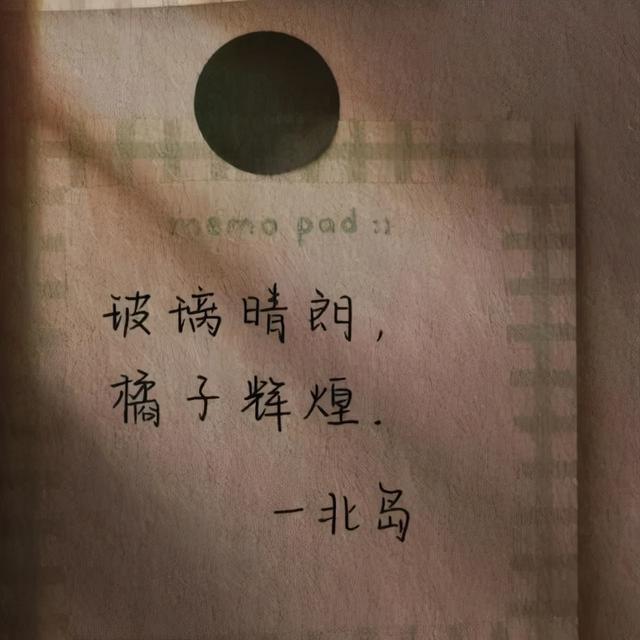 memo pad :)
玻璃晴朗，
橘子辉煌.
—北岛